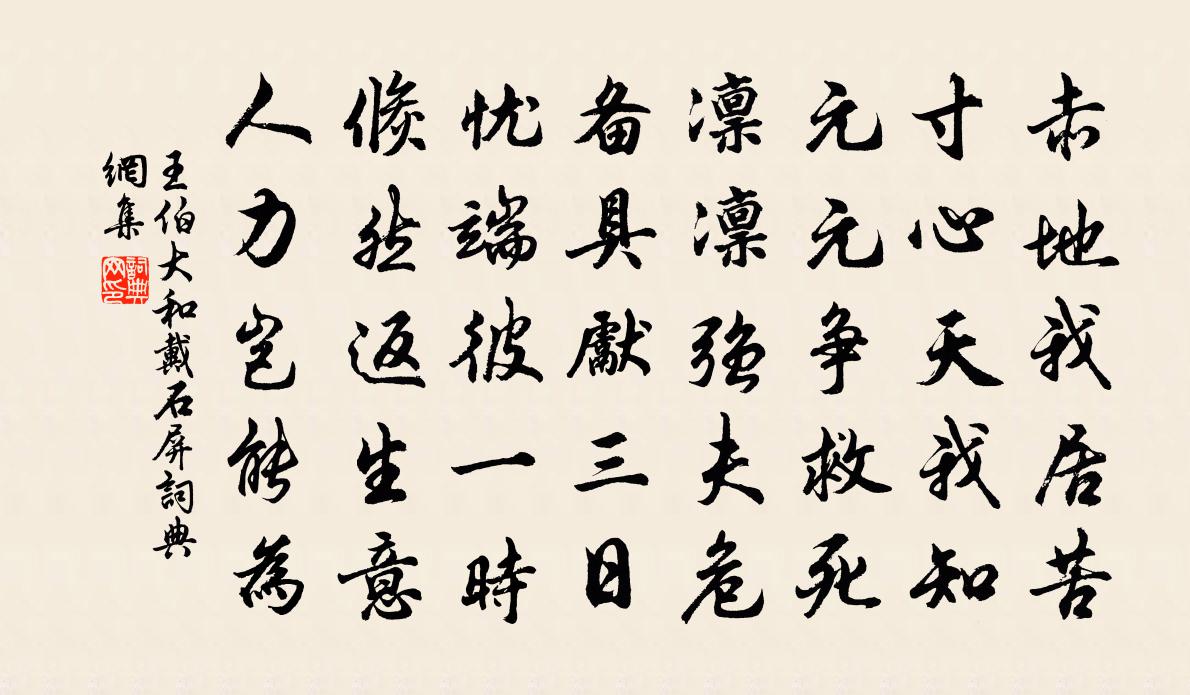 赤地我居苦
寸心天我知
元元争救死
凛凛強夫危
备具獻三日
忧端彼一時
倐然返生意
人力岂能為
王伯大和戴石屏詞典
網集
詞典
网印